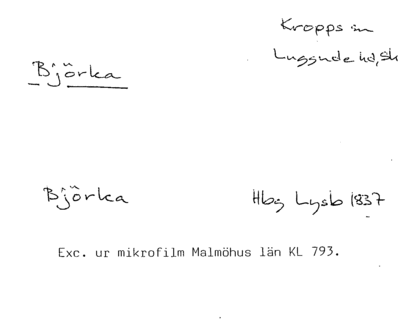 Björka
Kropps sn
Luggude hd, Sk
Björka
Hbg Lysb 1837
Exc. ur mikrofilm Malmöhus län KL 793.